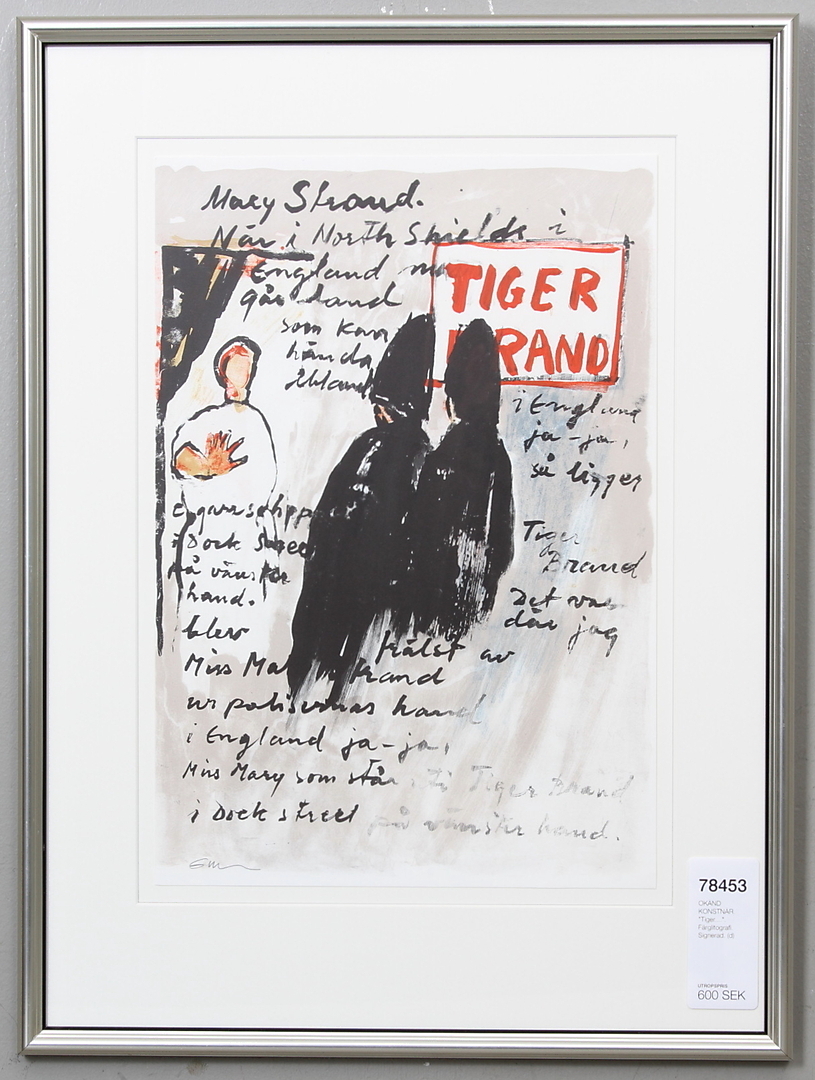 Mary Strand.
När i North Shields i
England
går land
som kan
hända
ibland
TIGER
BRAND
i England
ja-ja,
så ligger
Tiger
Brand
Det var
där jag
i Dock Street
på vänster
hand.
blev
frälst av
Miss Mary Strand
ur polisernas hand
i England ja-ja,
Miss Mary som står i Tiger Brand
i Dock street
på vänster hand.
78453
OKÄND
KONSTNÄR
"Tiger..."
Färglitografi
Signerad.
UTROPSPRIS
600 SEK